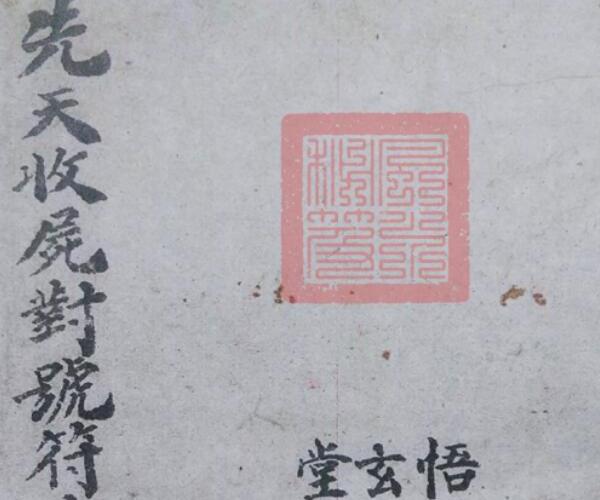 先天收屍對號符
悟玄堂